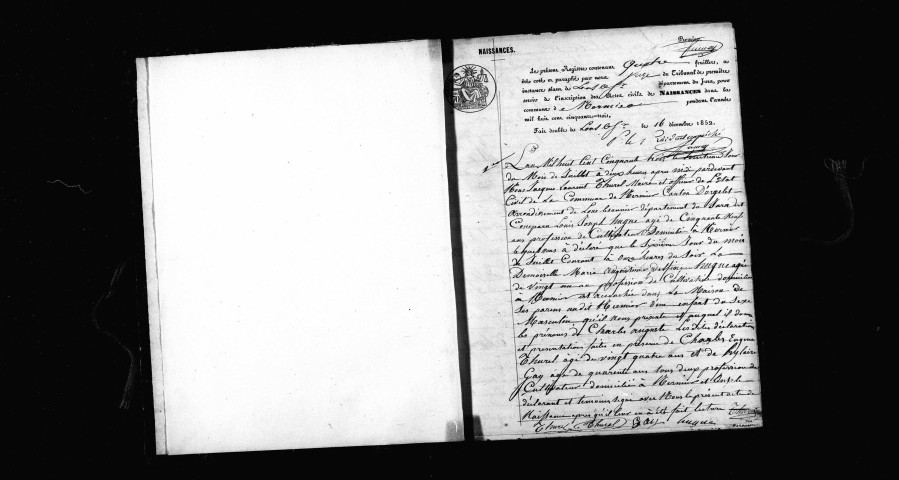 NAISSANCES.
Le présent Registre contenant quatre feuillets, a
été coté et paraphé par nous juge du Tribunal de première
instance séant de Lons le S.r département du Jura, pour
servir de l'inscription des Actes civils de NAISSANCES dans la
commune de Mernier pendant l'année
mil huit cent cinquante-trois.
Fait double de Lons le S.r le 16 décembre 1852.
L'an Mil huit Cent Cinquant trois le Jour
du Mois de Juillet à deux heures apres midi pardevant
Nous Jacque Laurent Thurel Maire et officier de L'Etat
Civil de La Commune de Mernier Canton D'orgelet
arrondissement de Lons Le Saunier département du Jura Est
Comparu Louis Joseph huque agé de Cinquante Neuf
ans profession de Cultivateur Domicilié à Mernier
lequel nous à déclaré que le Sixième Jour du mois
de Juillet Courant à onze heures du Soir La
Demoiselle Marie Augustine huque agée
de vingt ans profession de Cultivatrice domiciliée
à Mernier est accouchée dans La Maison De
Ses parens au dit Mernier d'un enfant du Sexe
Masculin qu'il nous présente et auquel il donne
les prénoms de Charles auguste Les dites déclaration
et présentation faites en présence de Charles Eugène
Thurel agé de vingt quatre ans et de hylaire
Gay agé de quarente ans tous deux profession de
Cultivateur domicilié à Mernier et
déclarant et temoins signé avec Nous le présent acte de
Naissance apres qu'il leur en à été fait lecture
Thurel Thurel Gay huque